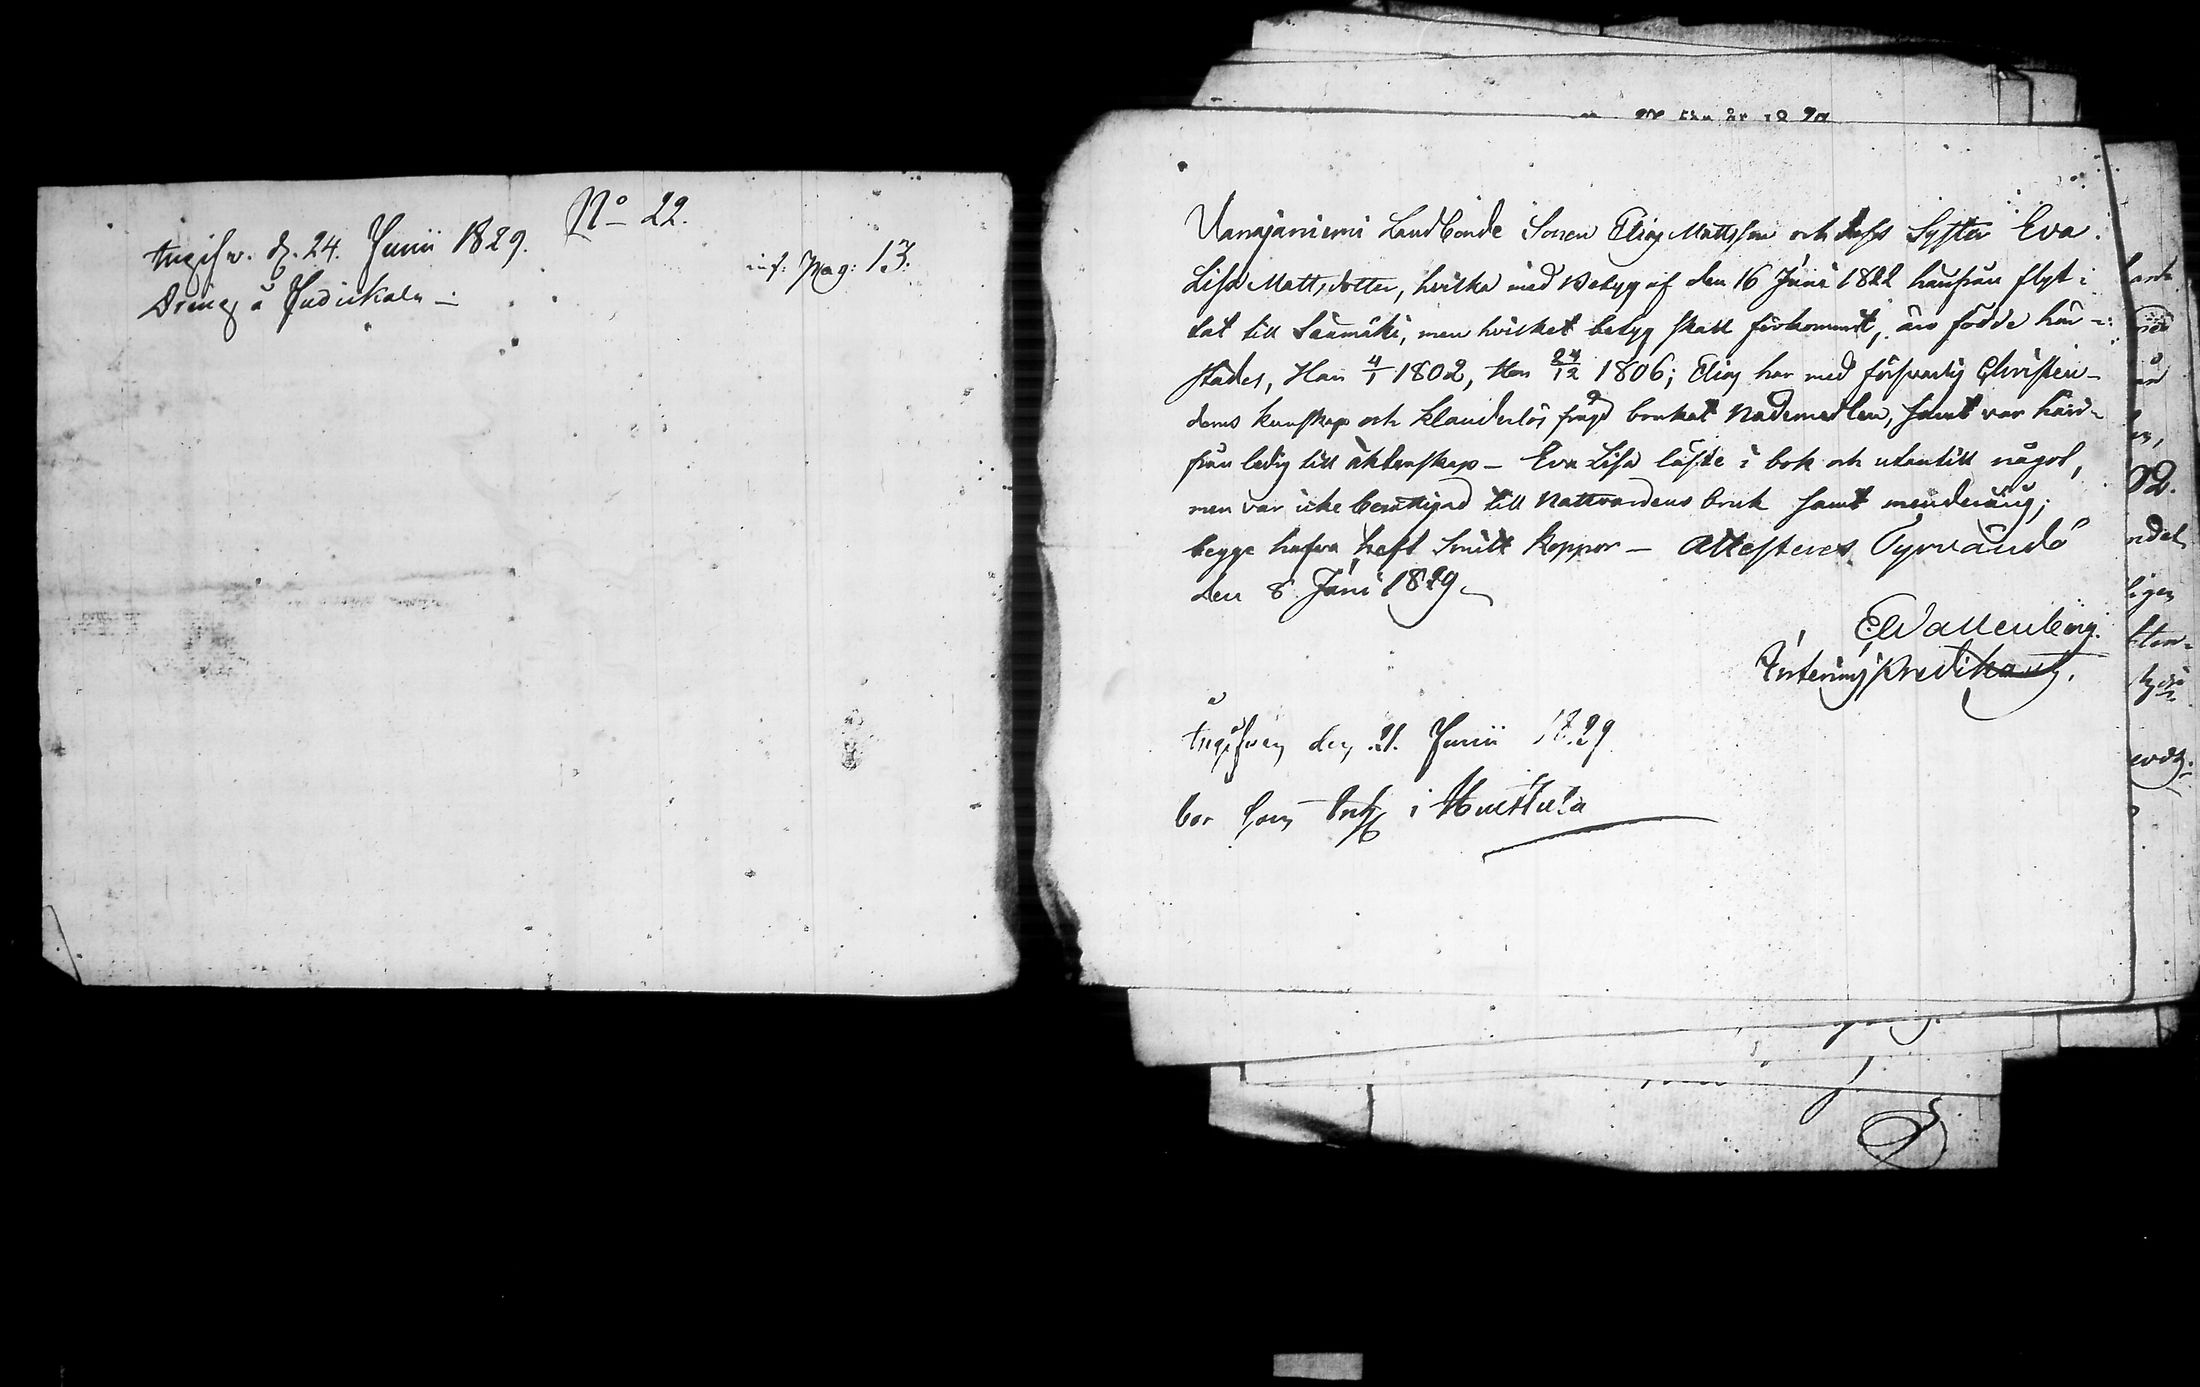 No 22.
Angifv. d. 24. Junii 1829.
inf: Pag: 13.
Dreng å Judikala –
Vanajaniemi Landbonde Sonen Elias Mattsson och dess Syster Eva
Lisa Mattsdotter, hvilka med Betyg af den 16 Juni 1822 härifrån flyt i
till Säämäki, men hvilket betyg skall förkommit, äro födde här-
städes, Han 4/1 1802, Hon 24/12 1806; Elias har med försvarlig Christen-
doms kunskap och klanderlös frägd brukat Nademedlen, samt var häri-
från ledig till äktenskap – Eva Lisa läste i bok och utantill något,
men var icke berättigad till Nattvardens bruk samt
begge hafva haft Smitt koppor – Attesteres Tyrvändö
den 8 Juni 1829
E Wallenberg.
Interims predikant.
Angifven den 21. Junii 1829
bor som i Huittula